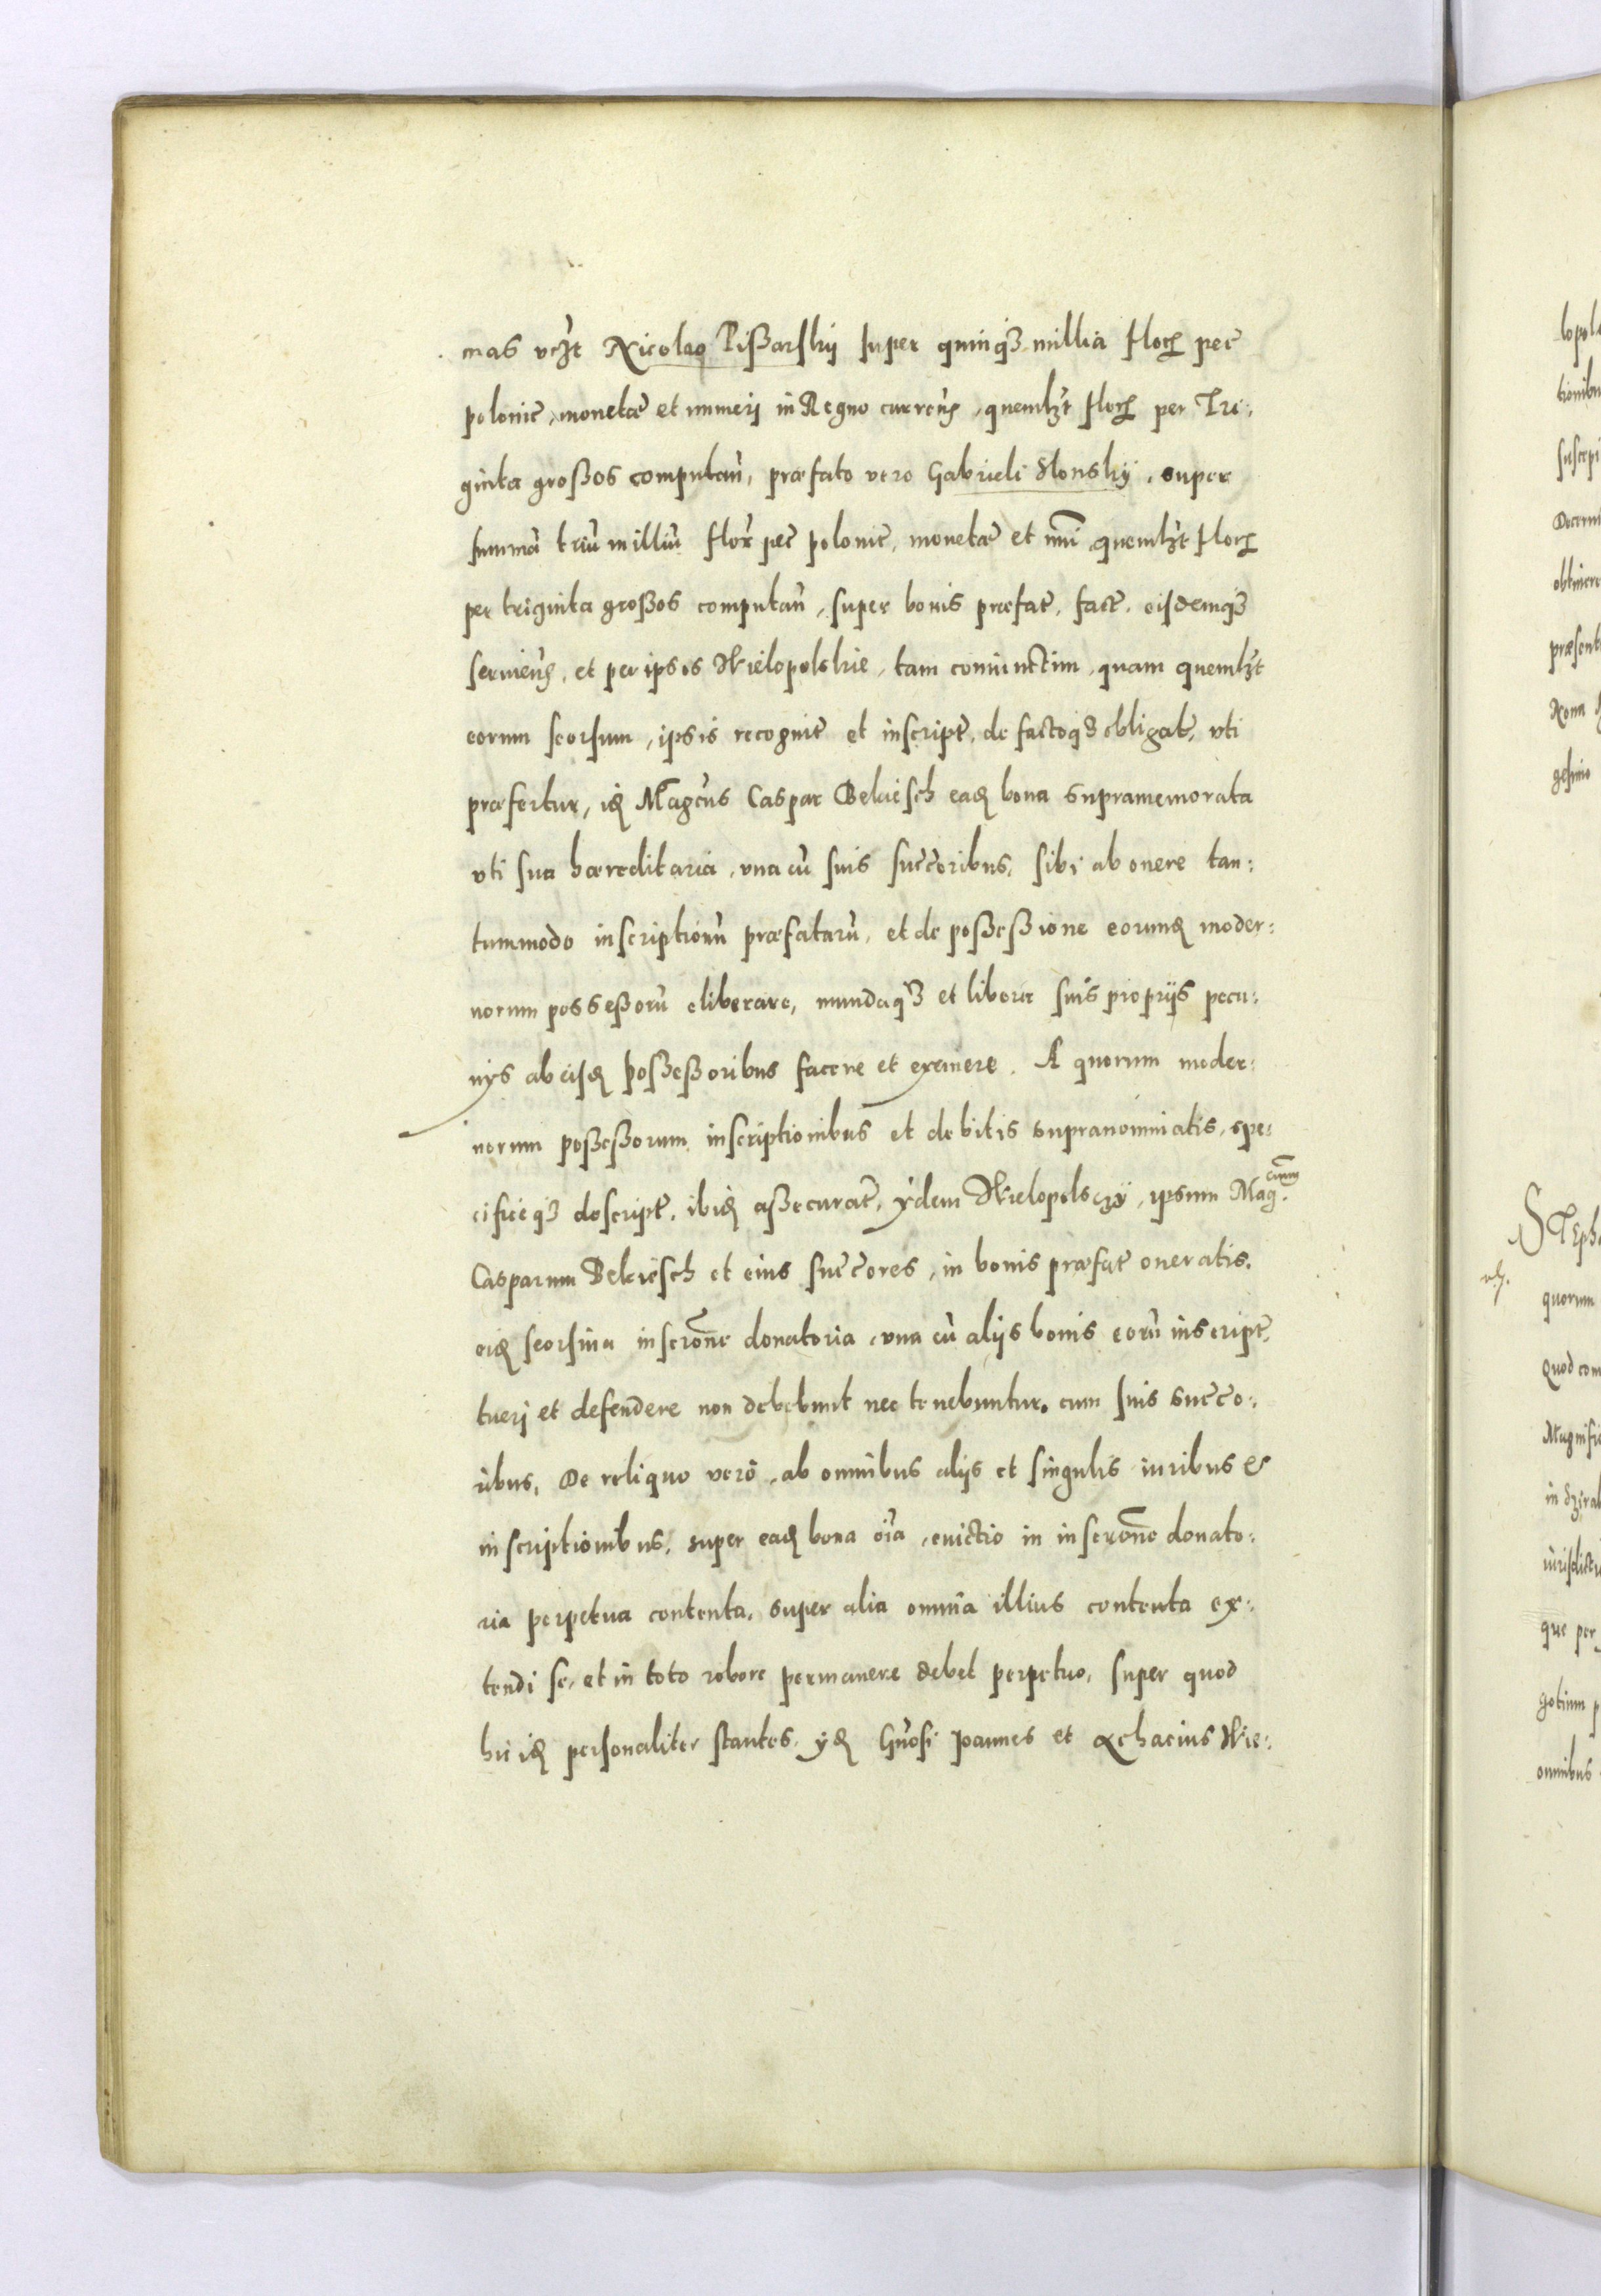 mas vcʒt Nicolao Pißarskij super quinqʒ millia floꝝ pec̃
polonic̃, monetæ et numerj in Regno curreñ, quemlʒt floꝝ per Tri:
ginta großos computañ, præfato vero Gabrieli Slonskÿ, super
summã triũ milliũ flor̃ pec̃ polonic̃, monetæ et nũi quemlʒt floꝝ
per triginta großos computañ, super bonis præfat̃, fact̃, eisdemqʒ
servieñ, et per ipsos Wielopolskie, tam coniunctim, quam quemlʒt
eorum seorsum, ipsis recognit̃ et inscript̃, de factoqʒ obligat̃, vti
præfertur, iđ Magcũs Caspar Bekiesch eađ bona supramemorata
vti sua hæreditaria, vna cũ suis succ̃oribus, sibi ab onere tan:
tummodo inscriptionũ præfatarũ, et de poßeßione eorumđ moder:
norum posseßorũ eliberare, mundaqʒ et libera suis proprijs pecu:
nijs ab eisđ poßeßoribus facere et eximere. A quorum moder:
norum poßeßorum inscriptionibus et debitis supranominatis, spe:
cificeqʒ descript̃, ibiđ aßecurat̃, ÿdem Wielopolsczÿ, ipsum Mag.cum
Casparum Bekiesch et eius succ̃ores, in bonis præfat̃ oneratis,
eiđ seorsiua inscrõne donatoria, vna cũ alijs bonis eorũ inscript̃,
tuerj et defendere non debebunt nec tenebuntur, cum suis succ̃o:
ribus, De reliquo verò, ab omnibus alijs et singulis iuribus &
inscriptionibus, super eađ bona oĩa, euictio in inscrõne donato:
ria perpetua contenta, super alia omnia illius contenta ex:
tendi se, et in toto robore permanere debet perpetuo, super quod
hic iđ personaliter stantes, ÿđ Gñosi Joannes et Achacius Wie:
lopol
tionibu
suscepi
Decern
obtinere
præsent
Nona
gesimo
STeph
quorum
Quod com
Magnifi
iurisdicti
que per
gotium p
omnibus